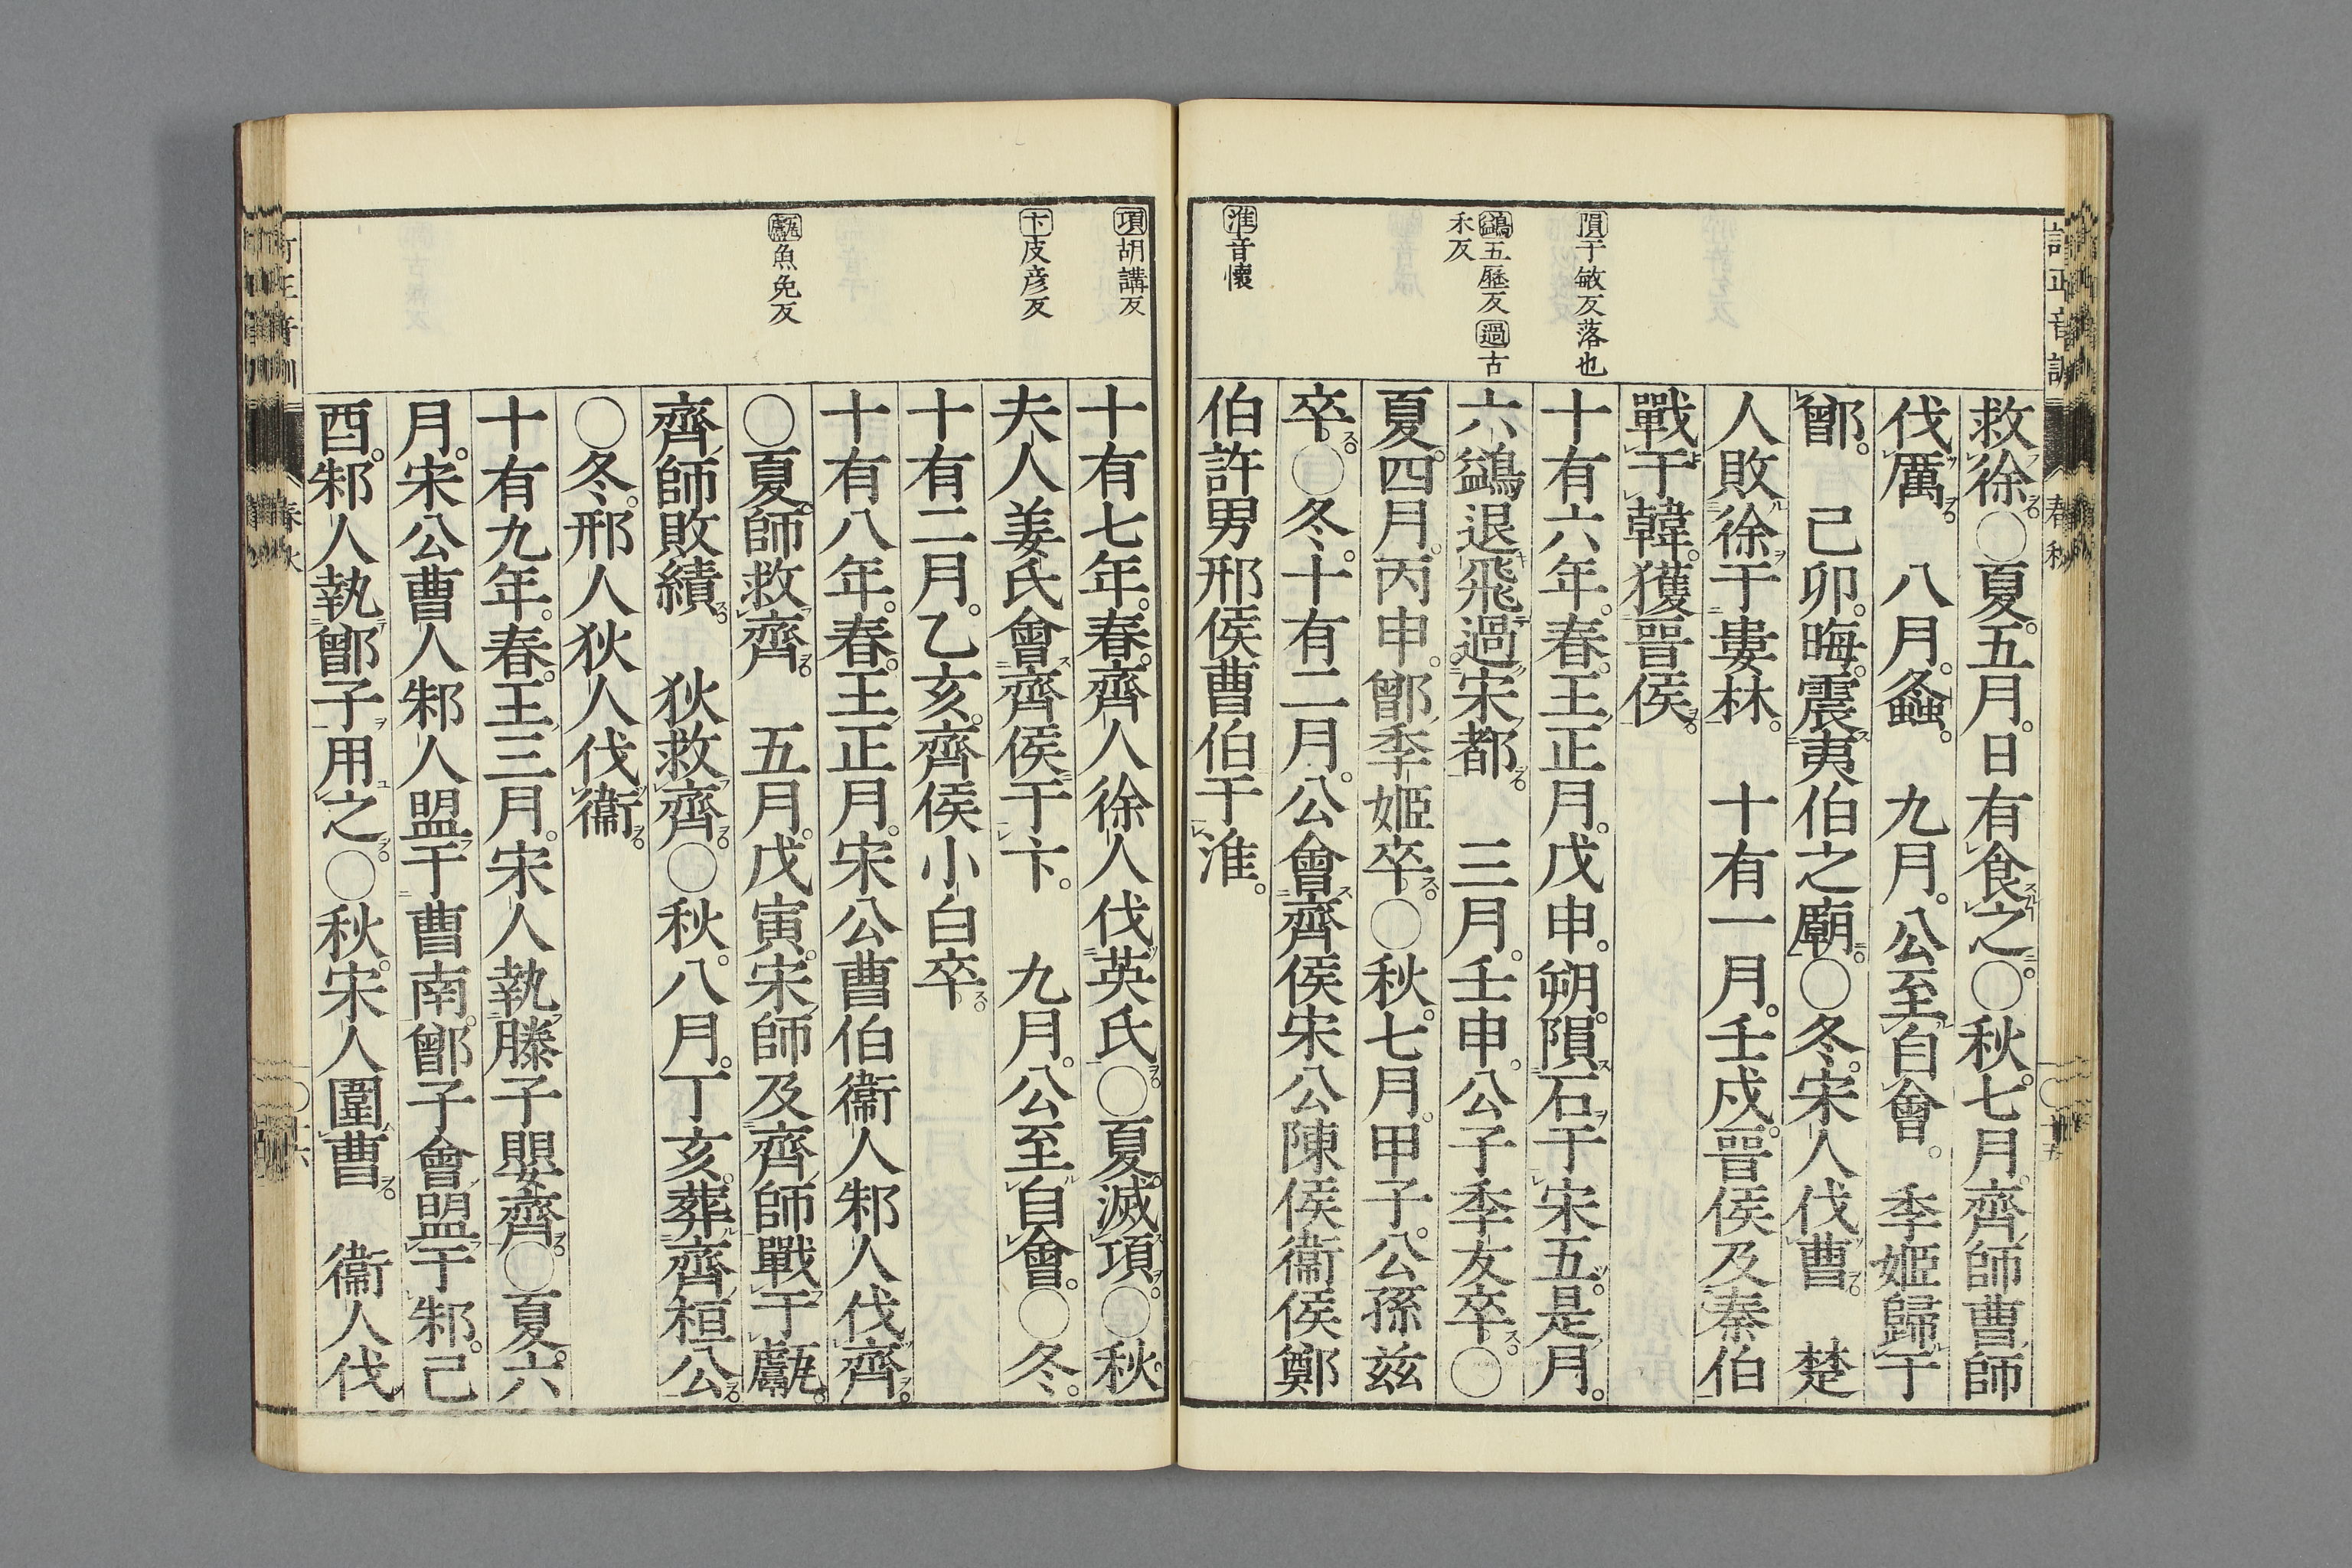 隕于敏反落也
鷁五歷反過古
禾反
淮音懷
救徐○夏五月日有食之○秋七月齊師曹師
伐厲　八月螽　九月公至自會　季姬歸于
鄫　己卯晦震夷伯之廟○冬宋人伐曹　楚
人敗徐于婁林　十有一月壬戌晉侯及秦伯
戰于韓獲晉侯
十有六年春王正月戊申朔隕石于宋五是月
六鷁退飛過宋都　三月壬申公子季友卒○
夏四月丙申鄫季姬卒○秋七月甲子公孫茲
卒○冬十有二月公會齊侯宋公陳侯衞侯鄭
伯許男邢侯曹伯于淮
項胡講反
卞皮彦反
甗魚免反
十有七年春齊人徐人伐英氏○夏滅項○秋
夫人姜氏會齊侯于卞　九月公至自會○冬
十有二月乙亥齊侯小白卒
十有八年春王正月宋公曹伯衞人邾人伐齊
○夏師救齊　五月戊寅宋師及齊師戰于甗
齊師敗績　狄救齊○秋八月丁亥葬齊桓公
○冬邢人狄人伐衞
十有九年春王三月宋人執滕子嬰齊○夏六
月宋公曹人邾人盟于曹南鄫子會盟于邾己
酉邾人執鄫子用之○秋宋人圍曹　衞人伐
春秋